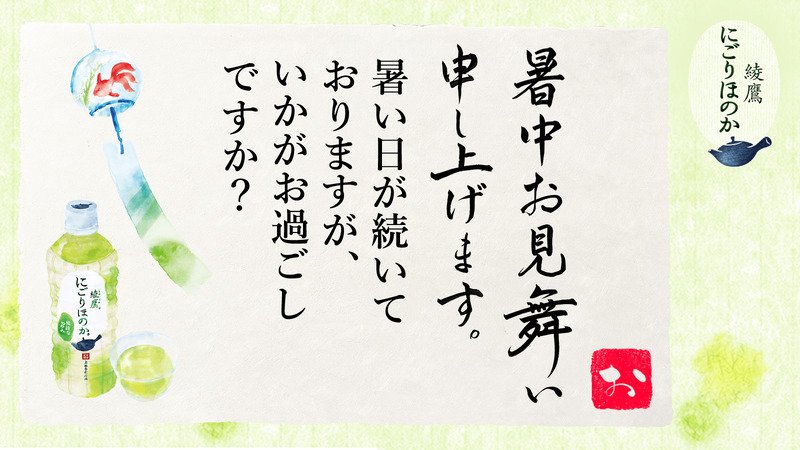 暑中お見舞い
申し上げます。
暑い日が続いて
おりますが、
いかがお過ごし
ですか？
お
綾鷹
にごりほのか
綾鷹
にごりほのか